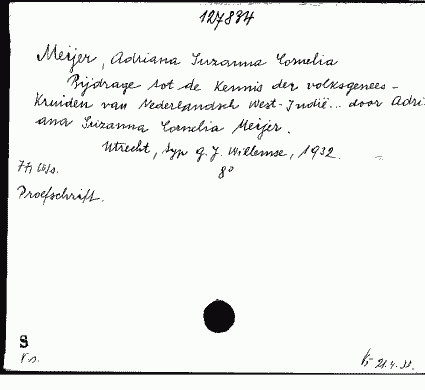 127834
Meijer, Adriana Suzanna Cornelia
Bijdrage tot de kennis der volksgenees-
kruiden van Nederlandsch West-Indië... door Adri-
ana Suzanna Cornelia Meijer.
Utrecht, typ. G. J. Willemse, 1932.
8°
Proefschrift.
S
21.4.33.